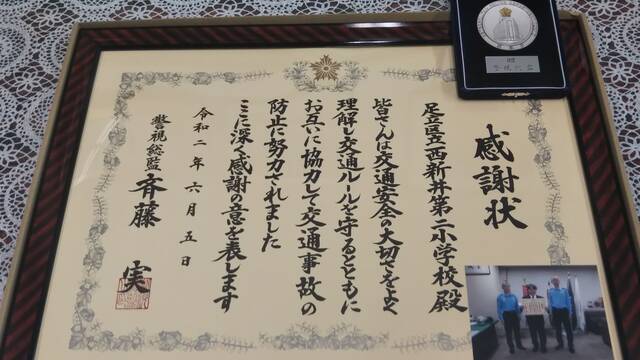 感謝状
足立区立西新井第二小学校殿
皆さんは交通安全の大切さをよく
理解し交通ルールを守るとともに
お互いに協力して交通事故の
防止に努力されました
ここに深く感謝の意を表します
令和二年六月五日
警視総監 斉藤 実